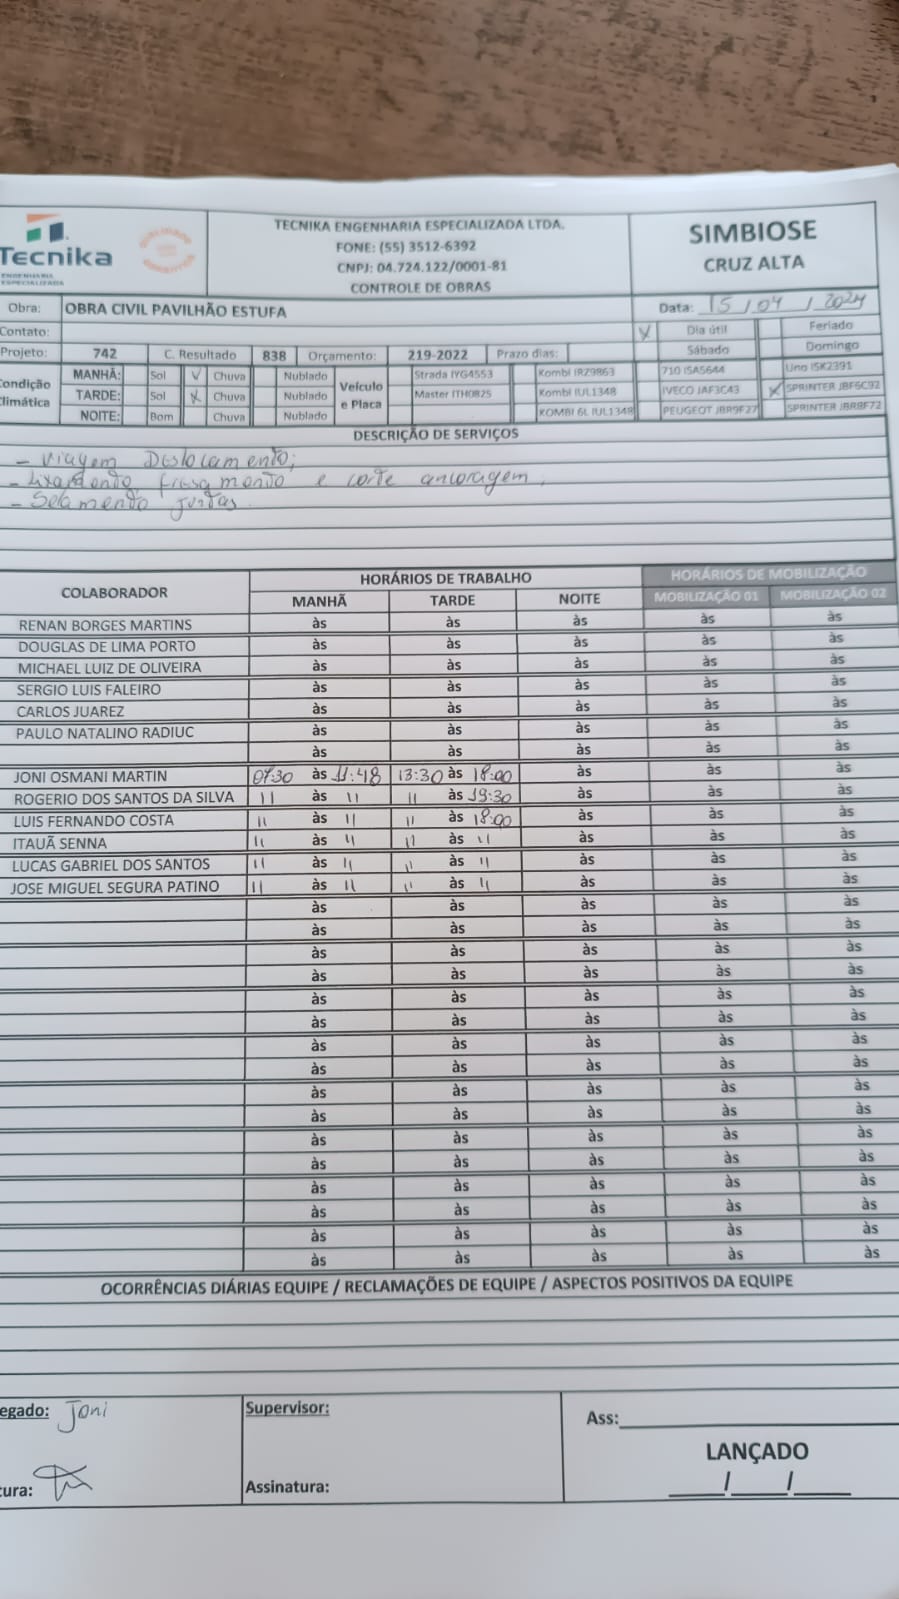 Tecnika
ENGENHARIA
ESPECIALIZADA
TECNIKA ENGENHARIA ESPECIALIZADA LTDA.
FONE: (55) 3512-6392
CNPJ: 04.724.122/0001-81
CONTROLE DE OBRAS
SIMBIOSE
CRUZ ALTA
Obra: OBRA CIVIL PAVILHÃO ESTUFA Data: 15/04/2024
Contato: X Dia útil Feriado
Projeto: 742 C. Resultado 838 Orçamento: 219-2022 Prazo dias: Sábado Domingo
Condição Climática Veículo e Placa
MANHÃ: Sol V Chuva Nublado Strada IYG4553 Kombi IRZ9863 710 ISA5644 Uno ISK2391
TARDE: Sol X Chuva Nublado Master ITH0825 Kombi IUL1348 IVECO JAF3C43 X SPRINTER JBF6C92
NOITE: Bom Chuva Nublado KOMBI 6L IUL1348 PEUGEOT JBR9F27 SPRINTER JBR8F72
DESCRIÇÃO DE SERVIÇOS
- Viagem Deslocamento;
- Lixamento, e corte ancoragem,
- Selamento juntas.
COLABORADOR HORÁRIOS DE TRABALHO HORÁRIOS DE MOBILIZAÇÃO
MANHÃ TARDE NOITE MOBILIZAÇÃO 01 MOBILIZAÇÃO 02
RENAN BORGES MARTINS às às às às às
DOUGLAS DE LIMA PORTO às às às às às
MICHAEL LUIZ DE OLIVEIRA às às às às às
SERGIO LUIS FALEIRO às às às às às
CARLOS JUAREZ às às às às às
PAULO NATALINO RADIUC às às às às às
às às às às às
JONI OSMANI MARTIN 07:30 às 11:48 13:30 às 18:00 às às às
ROGERIO DOS SANTOS DA SILVA 11 às 11 11 às 19:30 às às às
LUIS FERNANDO COSTA 11 às 11 11 às 18:00 às às às
ITAUÃ SENNA 11 às 11 11 às 11 às às às
LUCAS GABRIEL DOS SANTOS 11 às 11 11 às 11 às às às
JOSE MIGUEL SEGURA PATINO 11 às 11 11 às 11 às às às
às às às às às
às às às às às
às às às às às
às às às às às
às às às às às
às às às às às
às às às às às
às às às às às
às às às às às
às às às às às
às às às às às
às às às às às
às às às às às
às às às às às
às às às às às
às às às às às
OCORRÊNCIAS DIÁRIAS EQUIPE / RECLAMAÇÕES DE EQUIPE / ASPECTOS POSITIVOS DA EQUIPE
egado: Joni
tura:
Supervisor:
Assinatura:
Ass:
LANÇADO
/ /